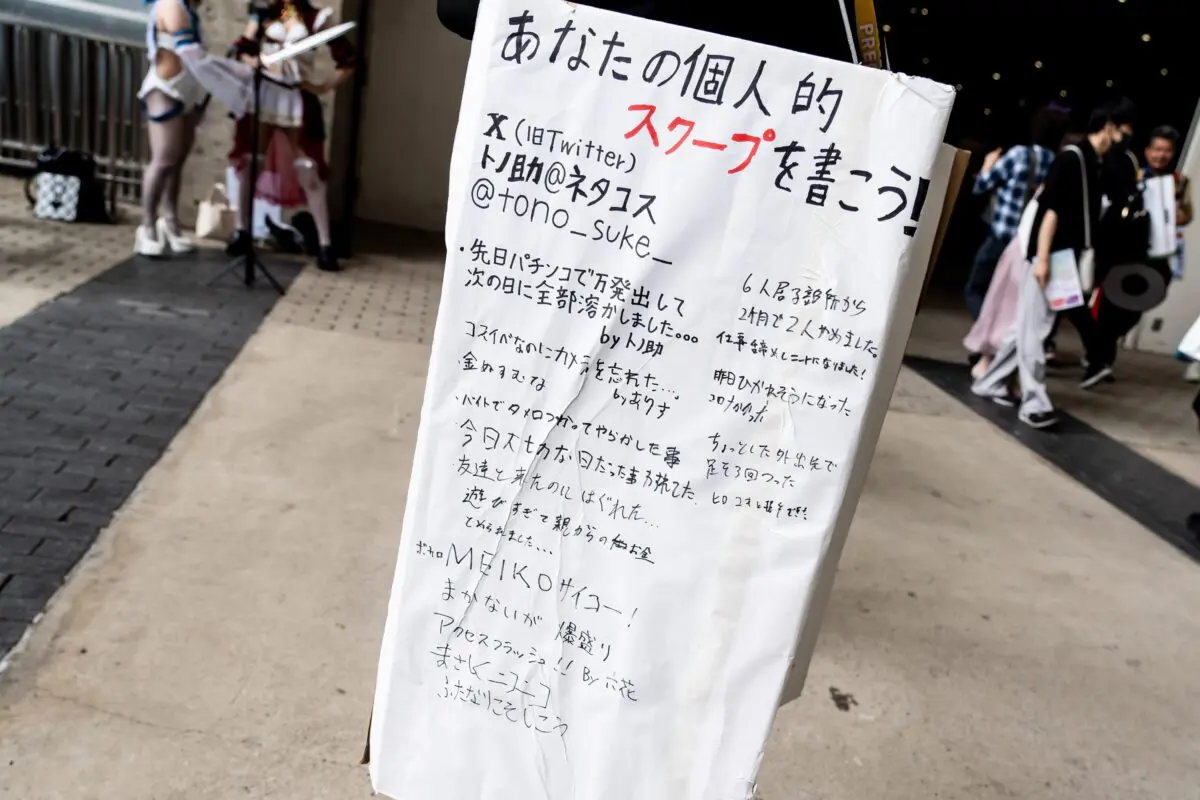 あなたの個人的
スクープを書こう!
X(旧Twitter)
トノ助@ネタコス
@tono_suke_
・先日パチンコで万発出して
次の日に全部溶かしました。。。
byトノ助
コスイベなのにカメラを忘れた…
byありす
・バイトでタメ口つかってやらかした事
今日大切な日だった事が
・友達と来たのにはぐれた…
遊びすぎて親からの
とめられました…
ボカロMEIKOサイコー!
まかないが爆盛り
アクセスフラッシュ!! By 六花
まさしくニコニコ
ふたなりこそしこう
6人居る部所から
2ヶ月で2人やめました。
仕事辞めしニートになりました!
昨日ひかれそうになった
ちょっとした外出先で
足を3回つった
PRE